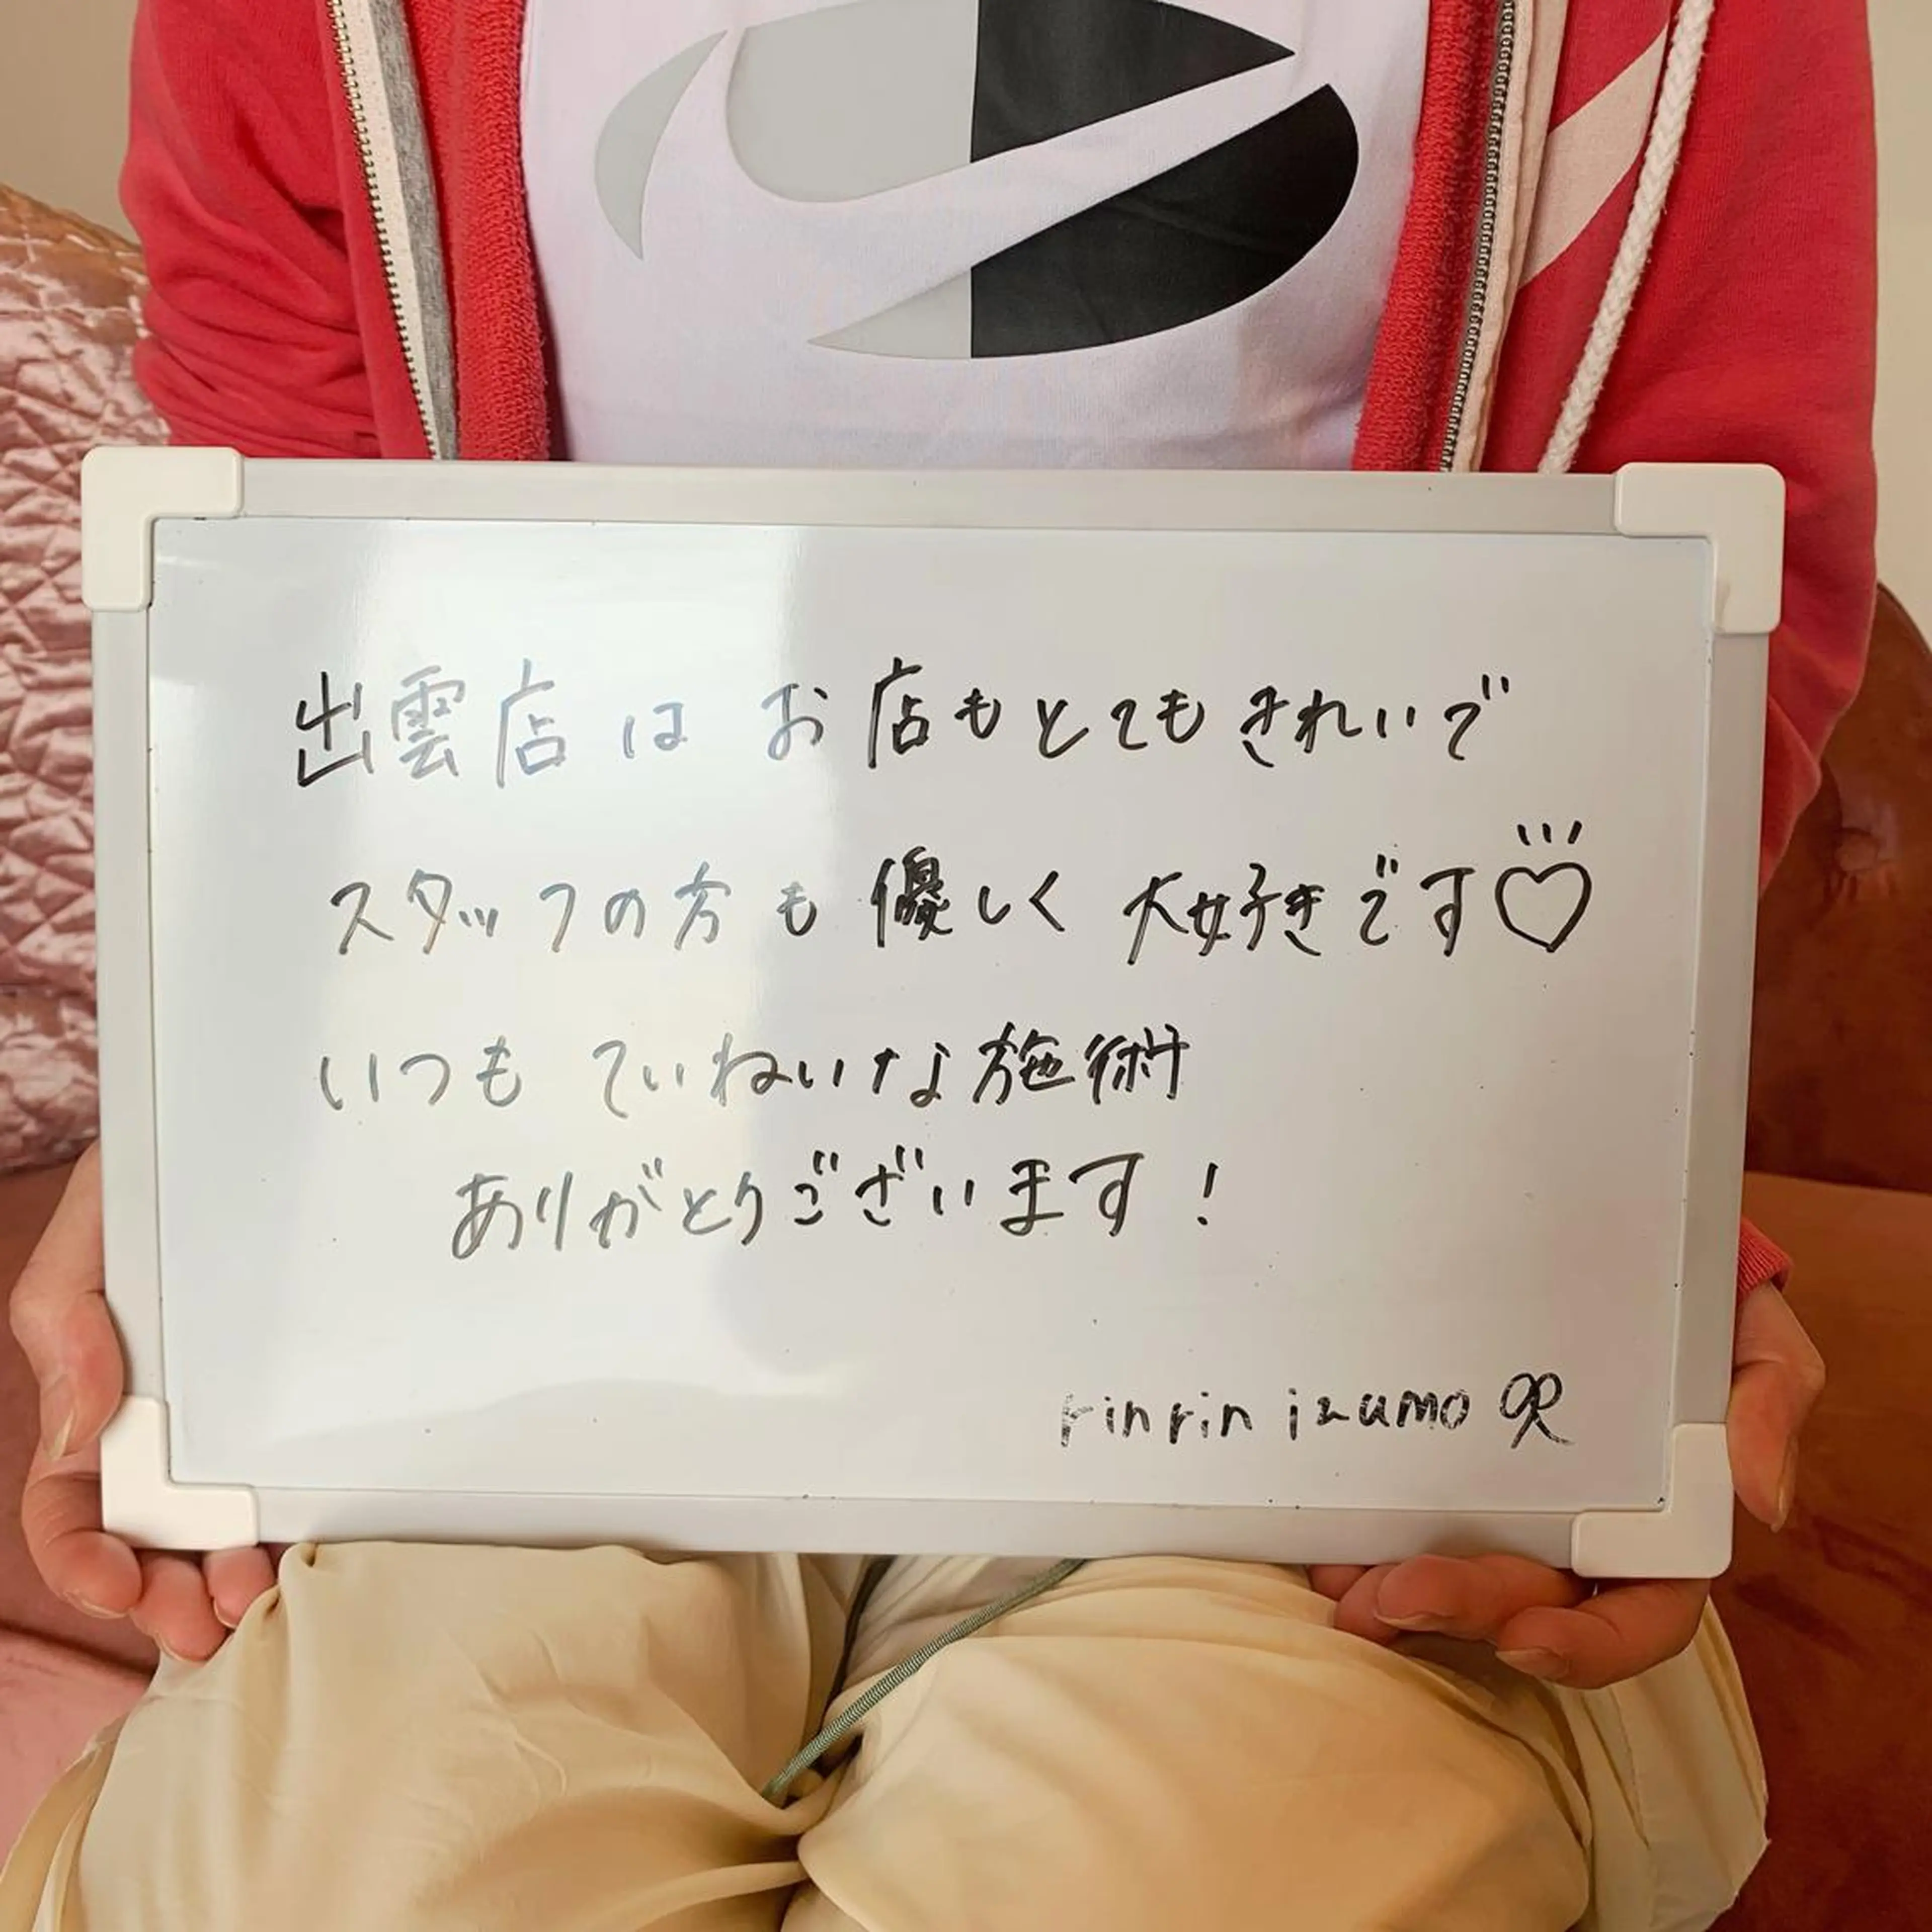 出雲店は お店もとてもきれいで
スタッフの方も優しく 大好きです♡
いつも ていねいな施術
ありがとうございます！
rinrin izumo